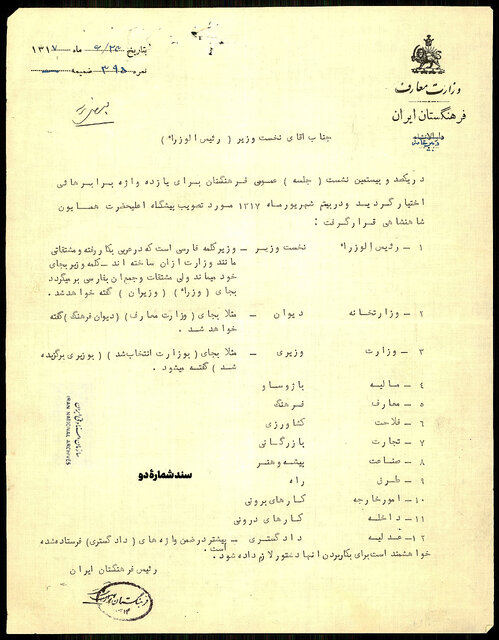 بتاریخ ۶/۲۴ ماه ۱۳۱۷
نمره ۳۹۵ ضمیمه
وزارت معارف
فرهنگستان ایران
دبیرخانه
جناب آقای نخست وزیر ( رئیس الوزراء )
دریکصد و بیستمین نشست ( جلسه ) عمومی فرهنگستان برای یازده واژه برابرهائی
اختیار گردید و دربیتم شهریورماه ۱۳۱۷ مورد تصویب پیشگاه اعلیحضرت همایون
شاهنشاهی قرارگرفت :
۱ - رئیس الوزراء نخست وزیر - وزیرکلمه فارسی است که درعربی بکاررفته و مشتقاتی
مانند وزارت ازان ساخته اند - کلمه وزیر بجای
خود میماند ولی مشتقات وجمع ان بفارسی برمیگردد
بجای ( وزراء ) ( وزیران ) گفته خواهدشد .
۲ - وزارتخانه دیوان - مثلا بجای ( وزارت معارف ) ( دیوان فرهنگ ) گفته
خواهد شد .
۳ - وزارت وزیری - مثلا بجای ( بوزارت انتخاب شد ) ( بوزیری برگزیده
شد ) گفته میشود .
۴ - مالیه بازوساو
۵ - معارف فرهنگ
۶ - فلاحت کشاورزی
۷ - تجارت بازرگانی
۸ - صناعت پیشه وهنر
۹ - طرق راه
۱۰ - امورخارجه کارهای برونی
۱۱ - داخله کارهای درونی
۱۲ - عدلیه دادگستری - پیشتر درضمن واژه های ( دادگستری ) فرستاده شده
است .
خواهشمند است برای بکاربردن انها دستور لازم داده شود .
رئیس فرهنگستان ایران
سند شمارهٔ دو
سازمان اسناد ملی ایران
IRAN NATIONAL ARCHIVES
فرهنگستان ایران